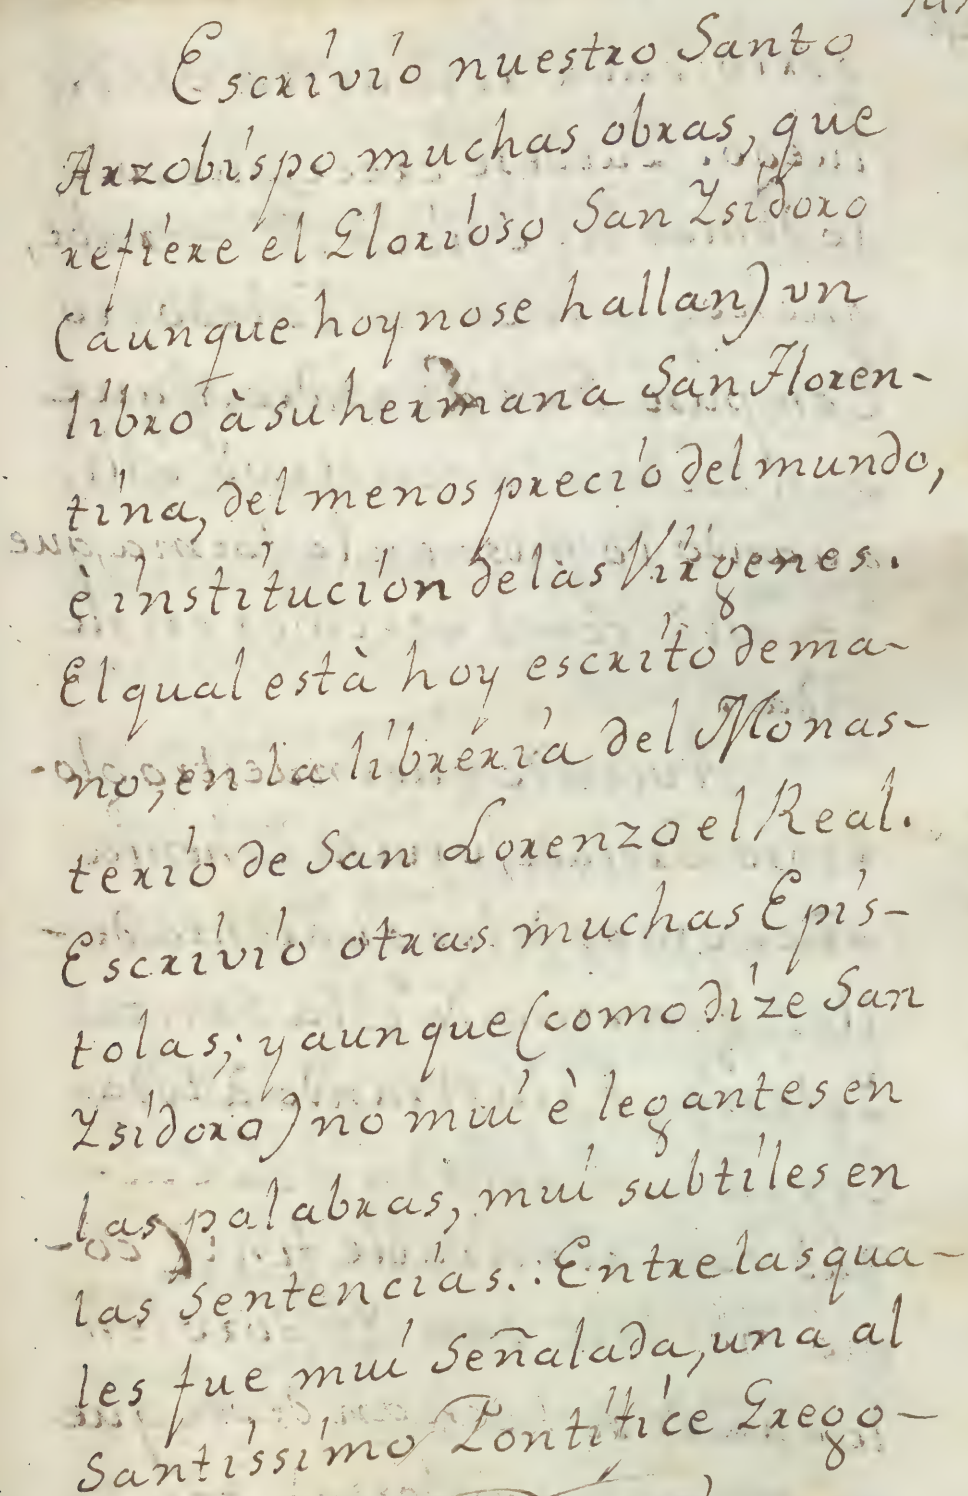 Escrivio nuestro Santo
Arzobispo muchas obras, que
refiere el Glorioso San Ysidoro
(aunque hoy no se hallan) vn
libro à su hermana San Floren-
tina, del menos precio del mundo,
è institucion de las Virgenes.
El qual està hoy escrito de ma-
no, en la libreria del Monas-
terio de San Lorenzo el Real.
Escrivio otras muchas Epis-
tolas; y aunque (como dize San
Ysidoro) no mui è legantes en
las palabras, mui subtiles en
las Sentencias.: Entre las qua-
les fue mui Señalada, una al
Santissimo Pontifice Grego-